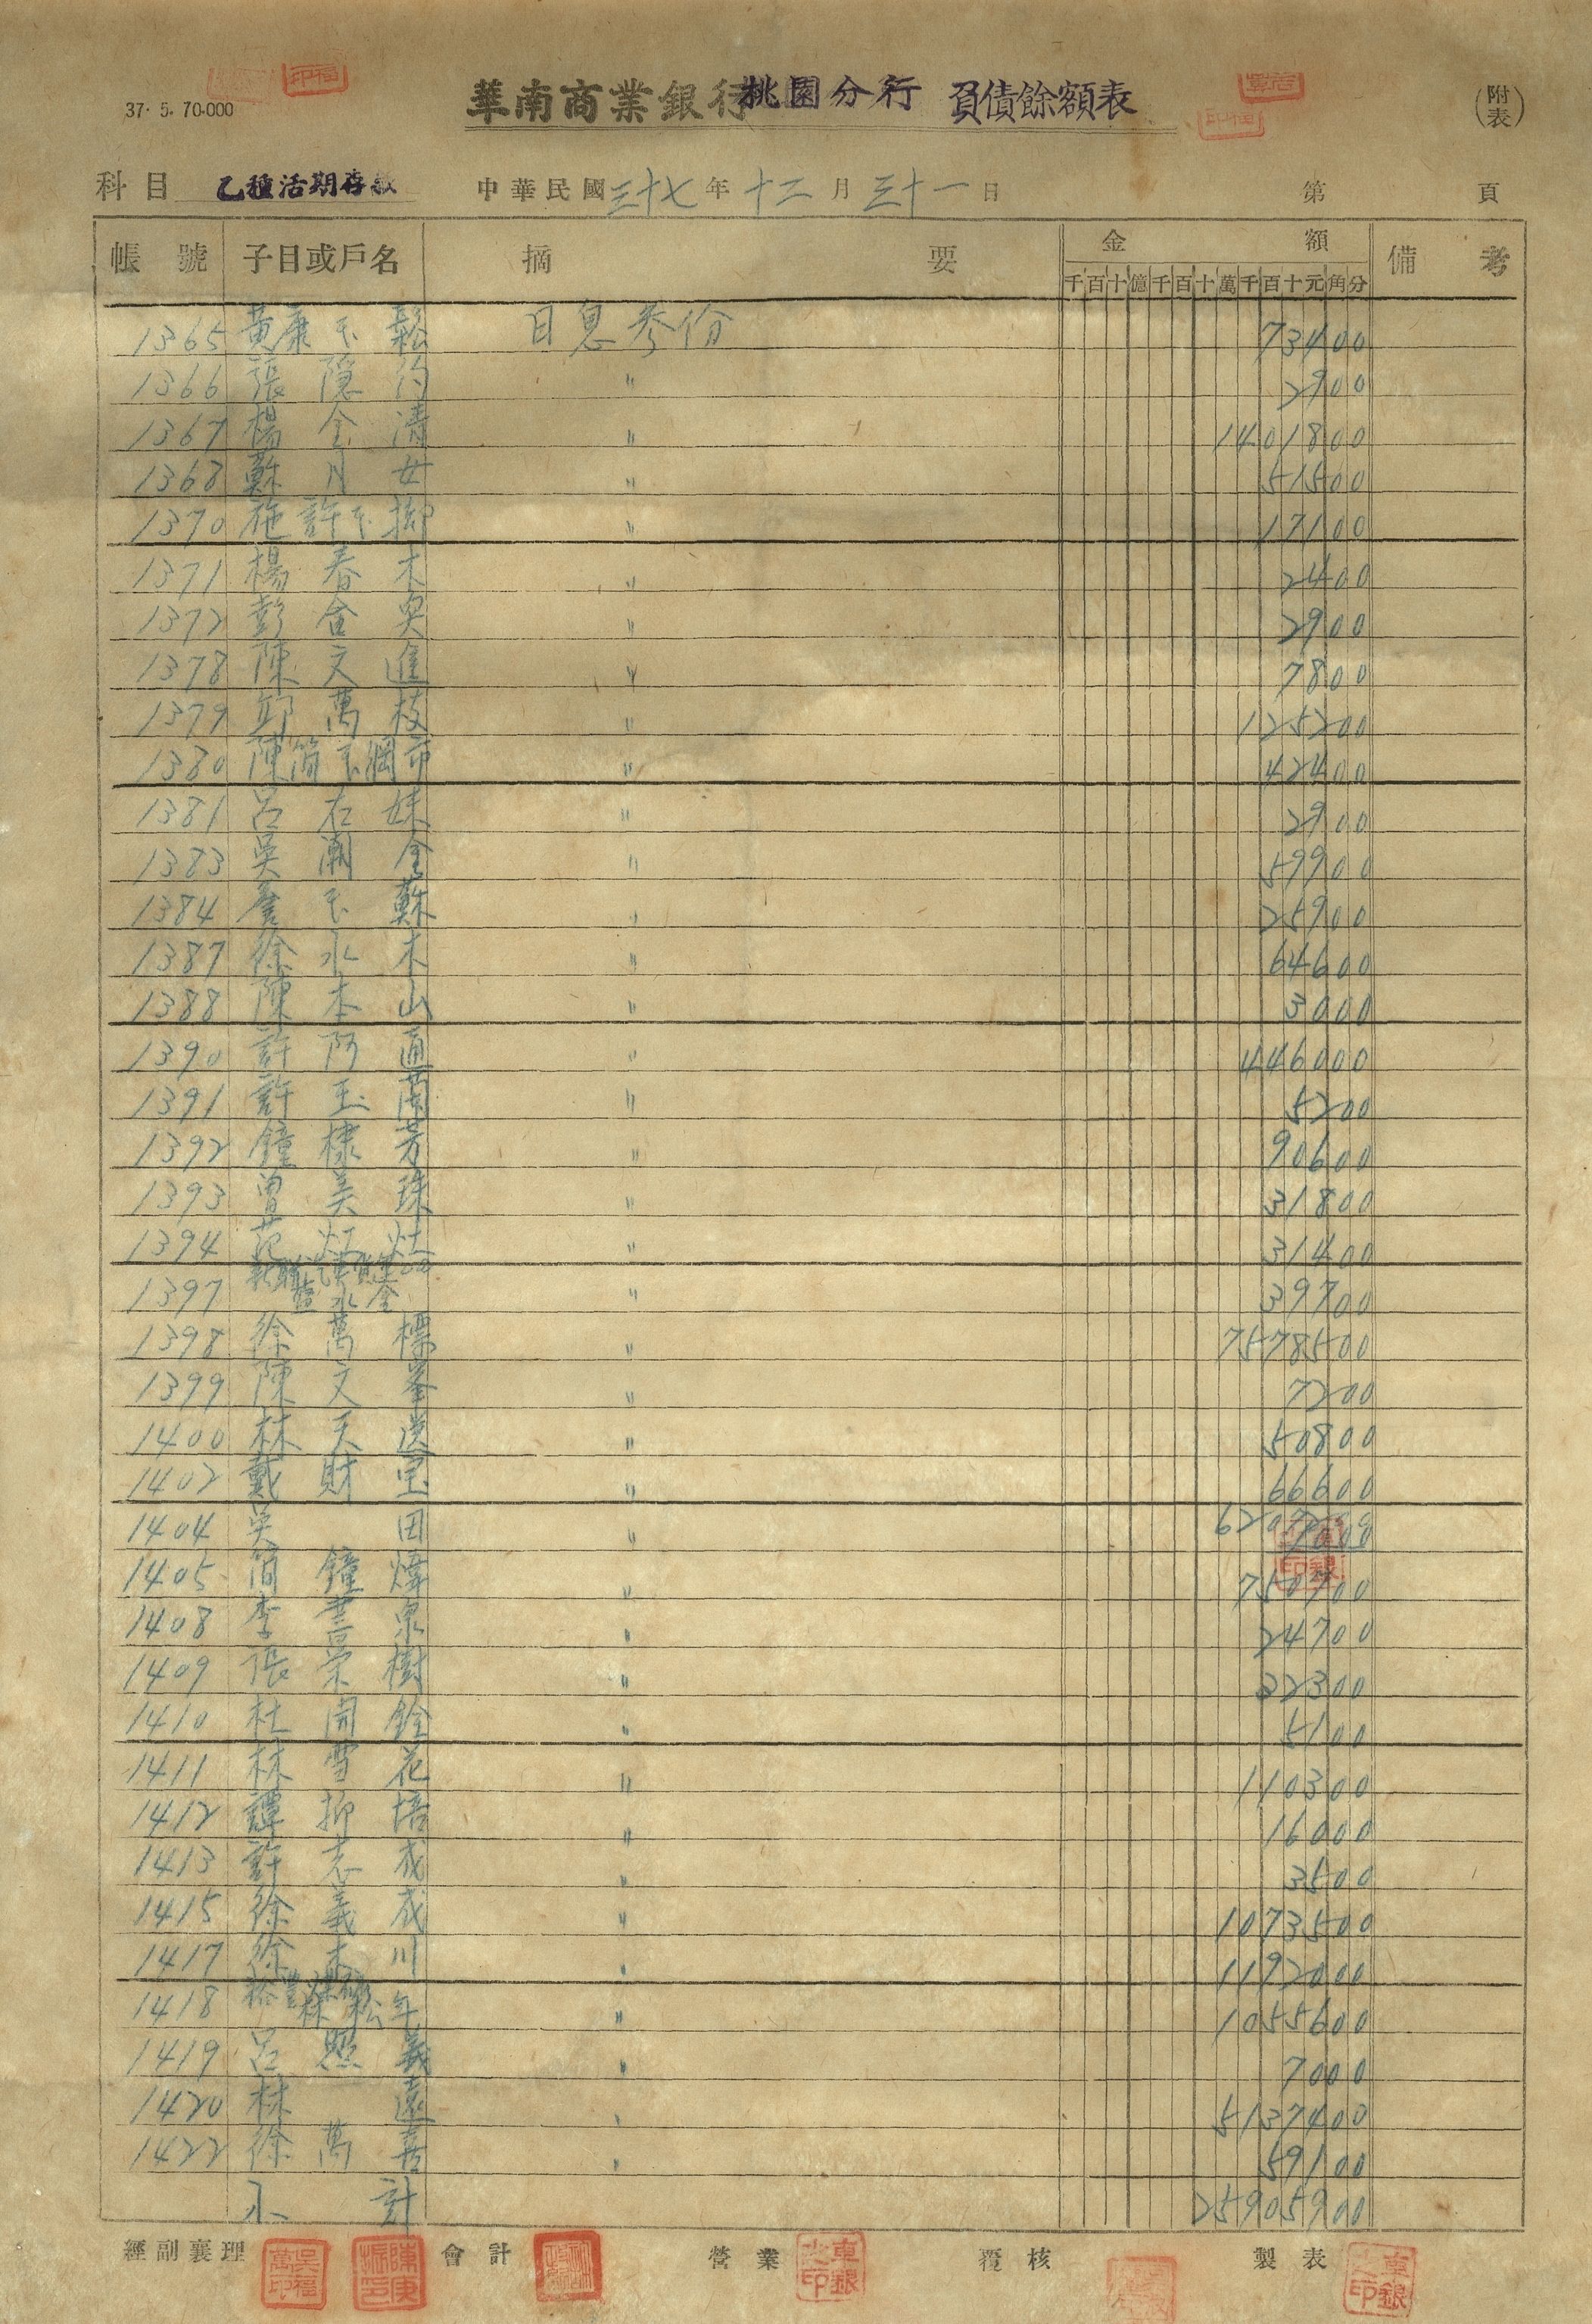 37. 5. 70.000
華南商業銀行桃園分行 負債餘額表
(附表)
科目 乙種活期存款 中華民國三十七年十二月三十一日 第 頁
帳號 子目或戶名 摘要 金額 備考
千百十億千百十萬千百十元角分
1365 黃康玉鬆 日息参份 73400
1366 張隱約 〃 2900
1367 楊金清 〃 1401800
1368 蘇月女 〃 51500
1370 施許玉抑 〃 17100
1371 楊春木 〃 2400
1372 彭金 〃 2900
1378 陳文進 〃 7800
1379 邱萬枝 〃 125200
1380 陳簡玉綢市 〃 42400
1381 呂在妹 〃 2900
1383 吳潮金 〃 59900
1384 詹玉蘇 〃 25900
1387 徐水木 〃 64600
1388 陳本山 〃 3000
1390 許阿通 〃 446000
1391 許玉蘭 〃 5200
1392 鐘棣芳 〃 90600
1393 曾美珠 〃 31800
1394 范 〃 31400
1397 水金 〃 39700
1398 徐萬標 〃 7578500
1399 陳文峯 〃 7200
1400 林天送 〃 50800
1402 戴財宝 〃 66600
1404 吳田 〃
1405 簡鐘煒 〃 750700
1408 李 泉 〃 24700
1409 張榮樹 〃 32300
1410 杜開銓 〃 5100
1411 林雪花 〃 110300
1412 譚抑培 〃 16000
1413 許志成 〃 3500
1415 徐義成 〃 1073500
1417 徐木川 〃 1192000
1418 林松年 〃 1055600
1419 呂照義 〃 7000
1420 林遠 〃 5137400
1422 徐萬喜 〃 59100
小計 25905900
經副襄理 會計 營業 覆核 製表